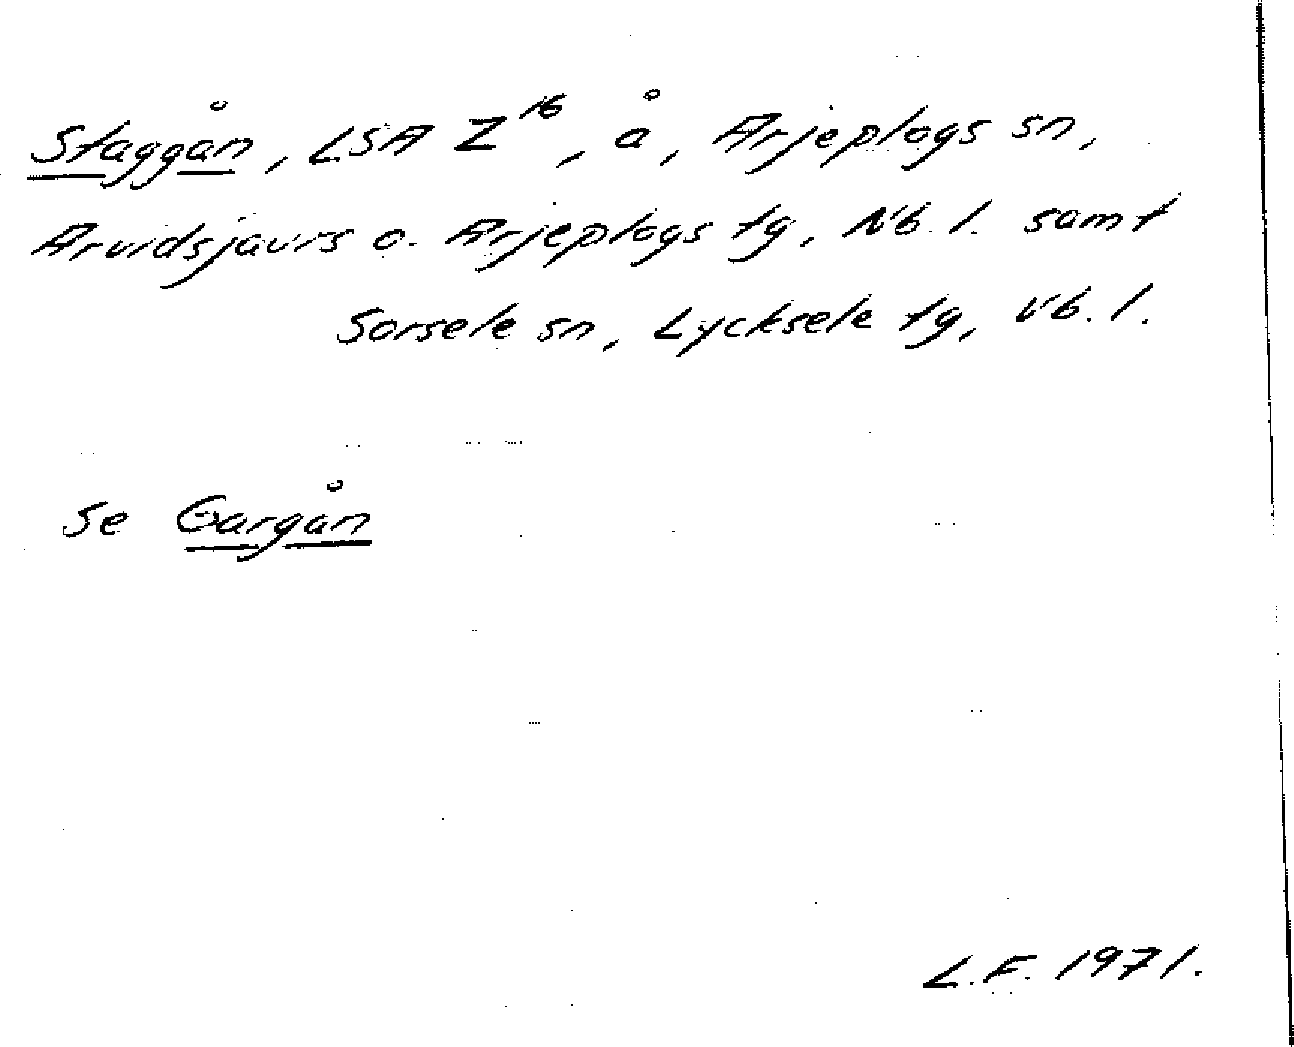 Staggån, LSA Z¹⁶, å, Arjeplogs sn,
Arvidsjaurs o. Arjeplogs tg, Nb. l. samt
Sorsele sn, Lycksele tg, Vb. l.
Se Gargån
L.F. 1971.